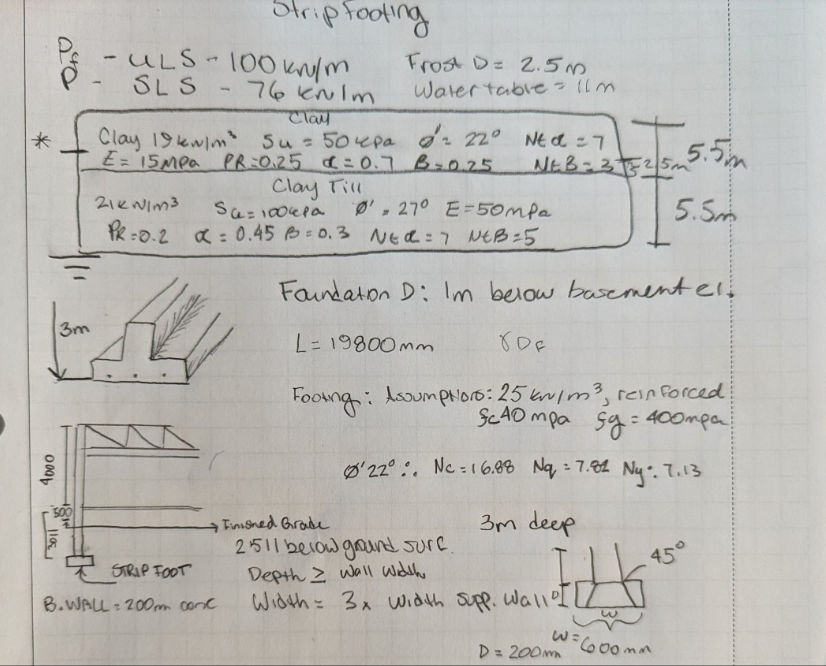 Strip Footing
Pf - ULS - 100 kN/m Frost D = 2.5m
P - SLS - 76 kN/m Water table = 11m
Clay
* Clay 19kN/m³ Su = 50 kPa Ø' = 22° Ntα = 7 5.5m
E = 15MPa PR=0.25 α = 0.7 B=0.25 NtB = 3
Clay Till
21kN/m³ Su=100kPa Ø' = 27° E=50mPa 5.5m
PR=0.2 α = 0.45 B=0.3 Ntα=7 NtB=5
Foundation D: 1m below basement el.
3m
L = 19800mm γDf
Footing: Assumptions: 25 kN/m³, reinforced
fc40 mpa fy = 400mpa
4000
Ø'22° ∴ Nc=16.88 Nq=7.82 Nγ: 7.13
500
Finished Grade 3m deep
2511 below ground surf.
45°
STRIP FOOT Depth ≥ Wall Width
B.WALL = 200mm conc Width = 3x width supp. wall D
w
w=600mm
D = 200mm